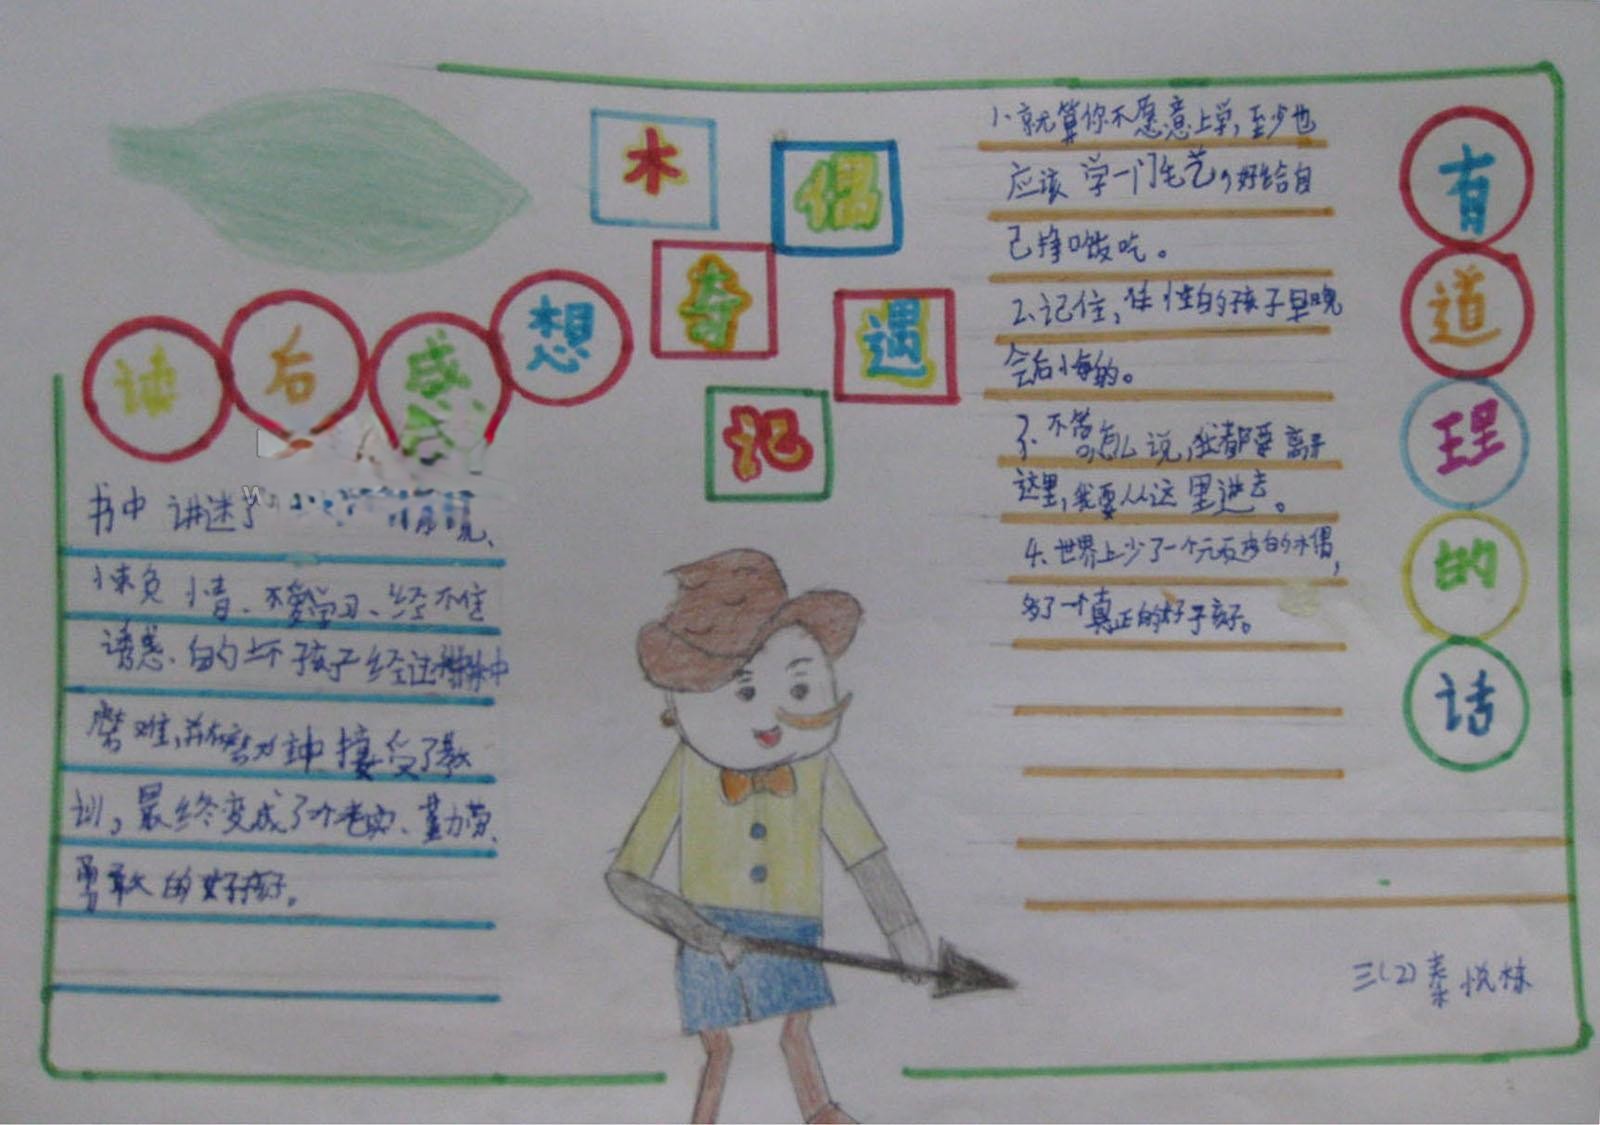 木偶奇遇记
读后感想
书中讲述了
懒惰、不爱学习、经不住
诱惑的坏孩子经过
磨难,并在磨难中接受了教
训,最终变成了个老实、勤劳、
勇敢的好孩子。
有道理的话
1、就算你不愿意上学,至少也
应该学一门手艺,好给自
己挣口饭吃。
2、记住,任性的孩子早晚
会后悔的。
3、不管怎么说,我都要离开
这里,我要从这里进去。
4、世界上少了一个元皮的木偶,
多了一个真正的好孩子。
三(2)秦悦栋